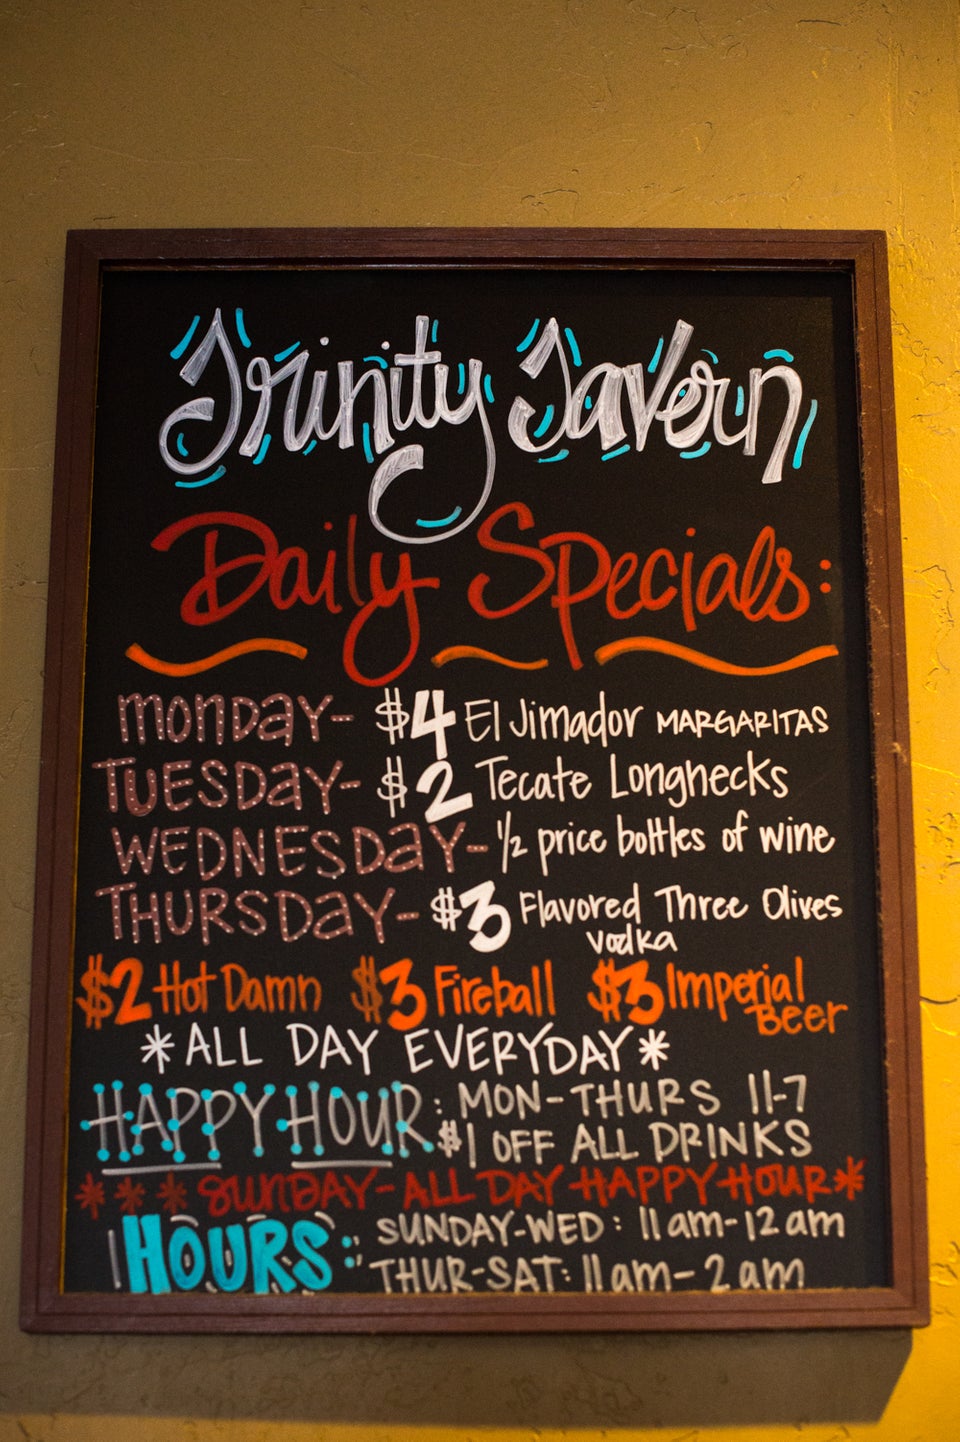 Trinity Tavern
Daily Specials:
MONDAY- $4 El Jimador MARGARITAS
TUESDAY- $2 Tecate Longnecks
WEDNESDAY- 1/2 price bottles of wine
THURSDAY- $3 Flavored Three Olives
vodka
$2 Hot Damn $3 Fireball $3 Imperial
Beer
*ALL DAY EVERYDAY*
HAPPY HOUR: MON-THURS 11-7
$1 OFF ALL DRINKS
*** SUNDAY-ALL DAY HAPPY HOUR*
HOURS: SUNDAY-WED: 11am-12am
THUR-SAT: 11am-2am